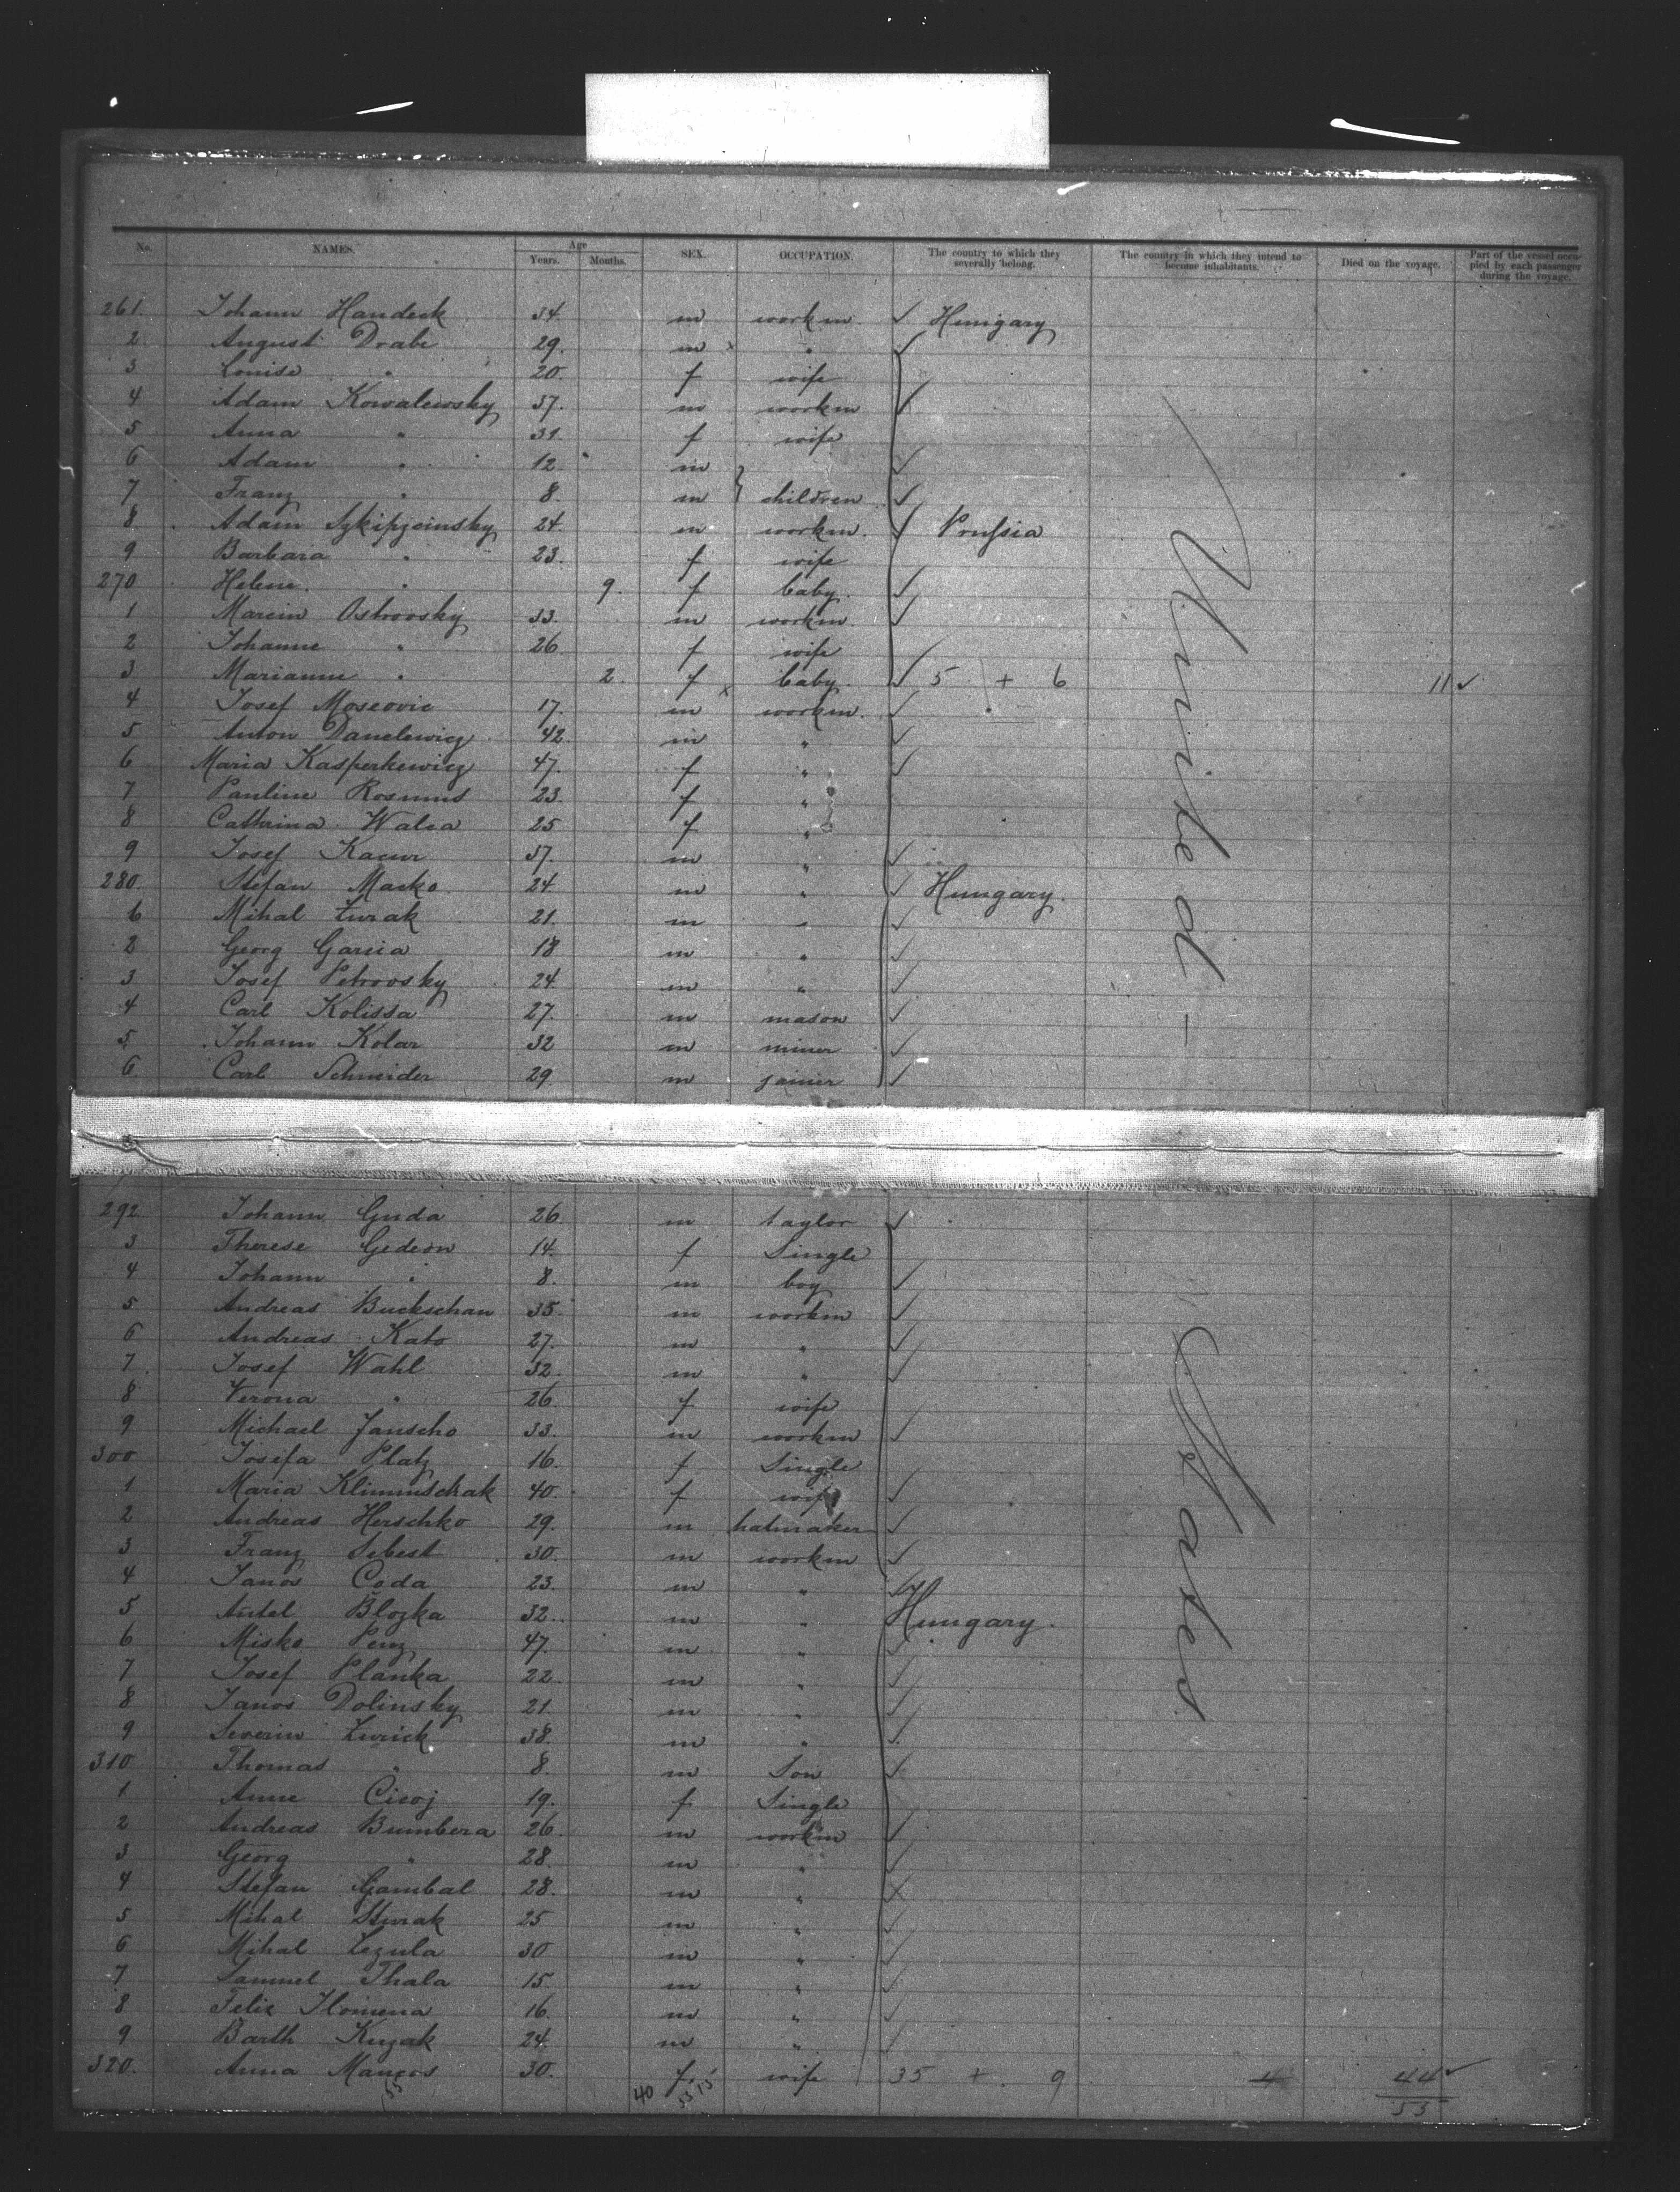 No. NAMES. Age Years. Months. SEX. OCCUPATION. The country to which they severally belong. The country in which they intend to become inhabitants. Died on the voyage. Part of the vessel occupied by each passenger during the voyage.
261. Johann Handeck 34. m workm. ✓ Hungary
2 August Drabe 29. m x " ✓
3 Louise " 20. f wife
4 Adam Kowalewsky 37. m workm ✓
5 Anna " 31. f wife
6 Adam " 12. m ✓
7 Franz " 8. m } children ✓
8. Adam Szkipjoinsky 24. m workm. ✓ Prussia
9 Barbara " 23. f wife
270 Helene " 9. f baby. ✓
1 Marcin Ostrovsky 33. m workm. ✓
2 Johanne " 26 f wife
3 Marianne " 2. f baby. ✓ 5 + 6 11 ✓
4 Josef Moscovic 17. m x workm. ✓
5 Anton Danelewicz 42. m " ✓
6 Maria Kasperkewicz 47. f " ✓
7 Pauline Rosmus 23. f "
8 Cathrina Walca 25 f "
9 Josef Kacur 37. m " ✓
280. Stefan Masko 24. m " ✓ Hungary.
1 Mihal Zurak 21. m " ✓
2 Georg Garcia 18 m " ✓
3 Josef Petrovsky 24 m " ✓
4 Carl Kolissa 27. m mason ✓
5. Johann Kolar 32 m miner ✓
6. Carl Schneider 29 m joinier ✓
United
292 Johann Guda 26 m taylor ✓
3 Therese Gedeon 14. f Single
4 Johann " 8. m boy ✓
5 Andreas Buckschan 35. m workm ✓
6 Andreas Kato 27. m " ✓
7. Josef Wahl 32. m " ✓
8 Verona " 26 f wife
9 Michael Janscho 33. m workm ✓
300 Josefa Platz 16. f Single
1 Maria Klimmschak 40. f wife ✓
2 Andreas Herschko 29. m hatmaker ✓
3 Franz Sebest 30. m workm ✓
4 Janos Coda 23. m " ✓
5 Antal Blozka 32. m " Hungary.
6 Misko Penz 47. m " ✓
7 Josef Planka 22. m " ✓
8 Janos Dolinsky 21. m " ✓
9 Severin Zurick 38. m " ✓
310. Thomas " 8. m Son ✓
1 Anne Cicoj 19. f Single
2 Andreas Bumbera 26. m workm ✓
3 Georg " 28. m " ✓
4 Stefan Gambal 28. m " x
5 Mihal Sturak 25 m " ✓
6 Mihal Lezula 30 m " ✓
7 Samuel Thala 15. m " ✓
8 Felix Homena 16. m " ✓
9 Barth Kuzak 24. m " ✓
320. Anna Mancos 30. f. wife 35 + 9 4 44 ✓
40 55
States